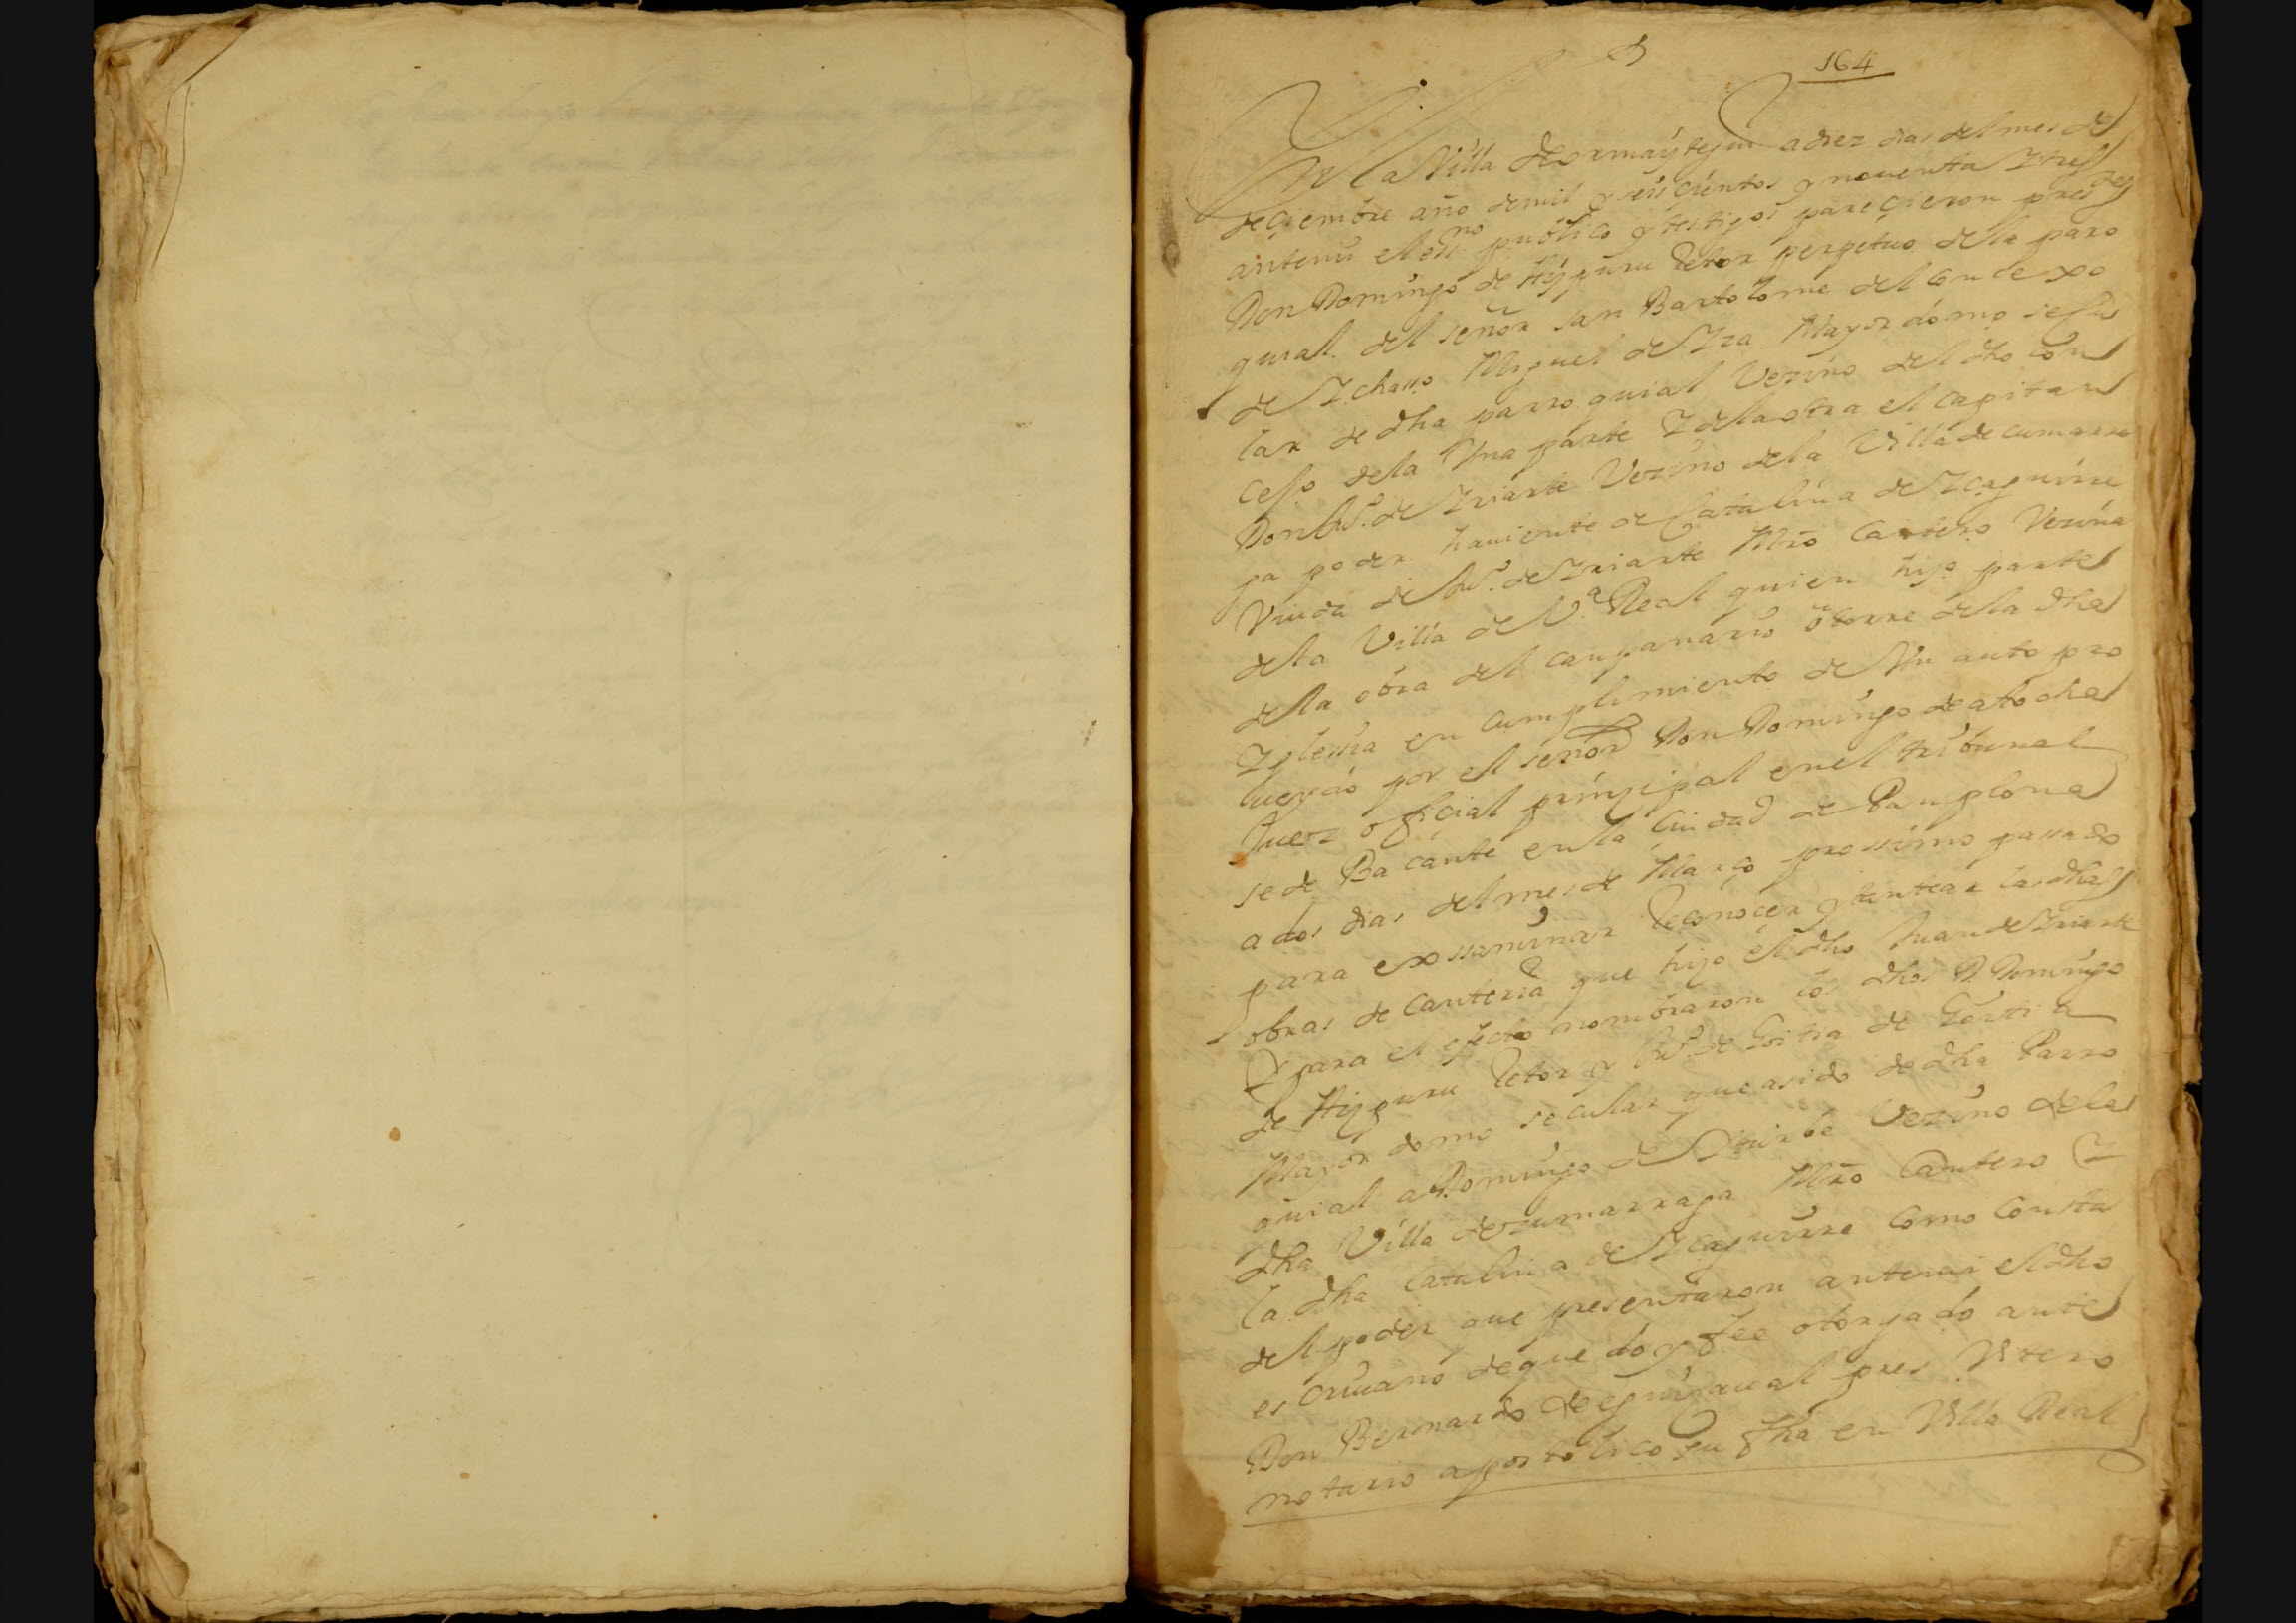 164
En la Villa de ormaýtegui a diez dias del mes de
deçiembre año de mil y seis cientos y nouenta Y tres
ante mi el esno publico y testigos pareçieron press.tes
Don Domingo de Hypuru Retor perpetuo de la paro
quial del señor san Bartolome del conçexo
de Ychasso Miguel de Yza Mayordomo secu
lar de dha parroquial Vezino del dho con
cejo de la Una parte Y de la otra el capitan
Don Ju.º de Yriarte Vezino de la Villa de cumarra
ga poder hauiente de Catalina de Yçaguirre
Viuda de Ju.º de Yriarte Mro Cantero Vezina
de la Villa de V.ª Real quien hizo parte
de la obra del campanario o torre de la dha
Yglesia en cumplimiento de Un auto pro
ueydo por el señor Don Domingo de atocha
Juez ofiçial prinçipal en el tribunal
sede Bacante en la Ciudad de Pamplona
a dos dias del mes de Março prossimo passado
para exssaminar Reconoçer y tantear las dhas
obras de canteria que hizo el dho Juan de Yriarte
Y para el efecto nombraron los dhos D. Domingo
de Hypuru Retor y Ju.º de Goitia de Gorria
Mayordomo secular que a sido de dha Parro
quial a Domingo de Yturbe Vezino de la
dha Villa de zumarraga Mro Cantero Y
la dha Catalina de Yçaguirre como consta
del poder que presentaron ante mi el dho
escriuano de que doy fee otorgado ante
Don Bernardo de eguizaual presUitero
notario apostolico su fha en Villa Real